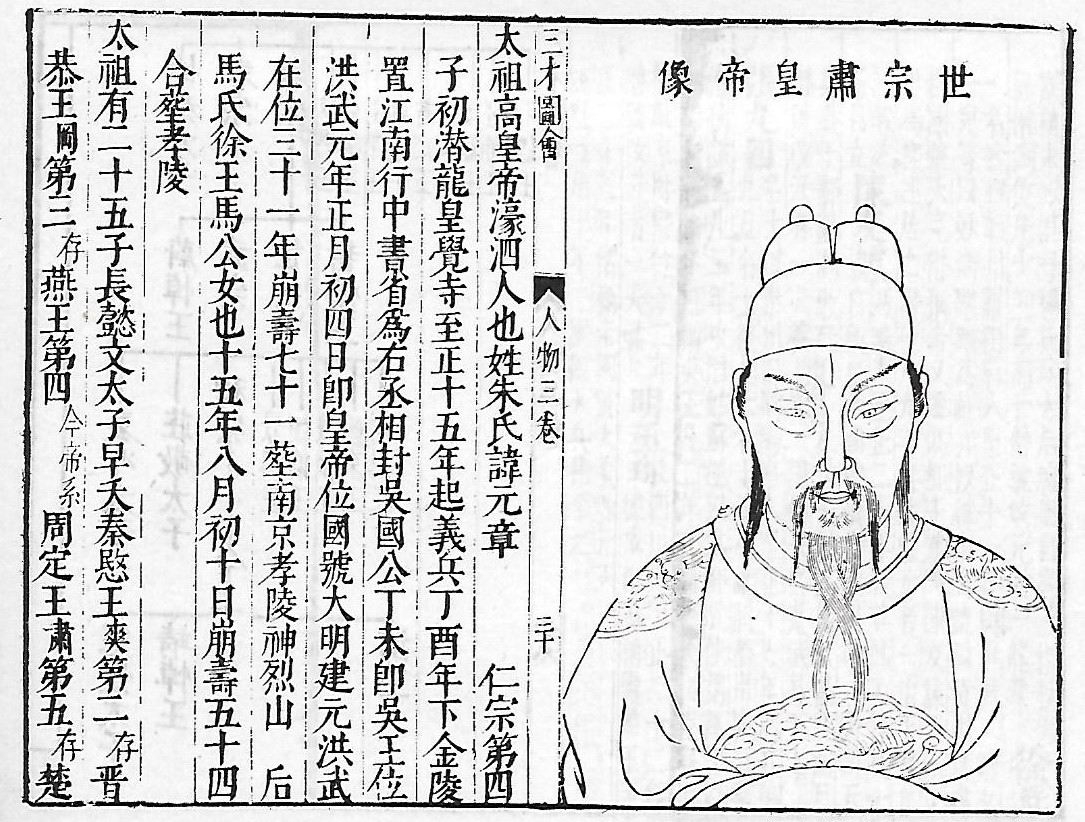 世宗肅皇帝像
三才圖會
人物三卷
三十
太祖高皇帝濠泗人也姓朱氏諱元章 仁宗第四
子初潜龍皇覺寺至正十五年起義兵丁酉年下金陵
置江南行中書省爲右丞相封吳國公丁未卽吳王位
洪武元年正月初四日卽皇帝位國號大明建元洪武
在位三十一年崩壽七十一塟南京孝陵神烈山 后
馬氏徐王馬公女也十五年八月初十日崩壽五十四
合塟孝陵
太祖有二十五子長懿文太子早夭秦愍王爽第二存晋
恭王棡第三存燕王第四今帝系周定王肅第五存楚